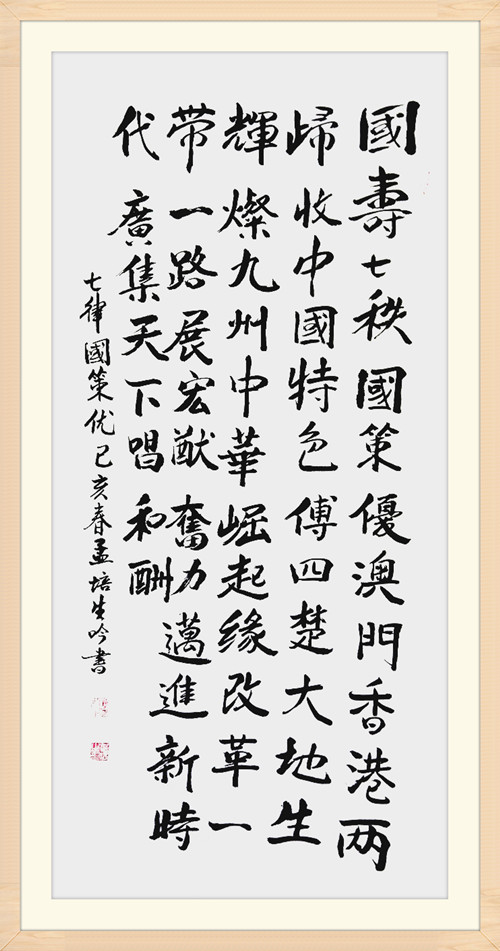 國壽七秩國策優澳門香港两
歸收中國特色傅四楚大地生
輝燦九州中華崛起缘改革一
带一路展宏猷奮力邁進新時
代廣集天下唱和酬
七律國策优己亥春孟培生吟書